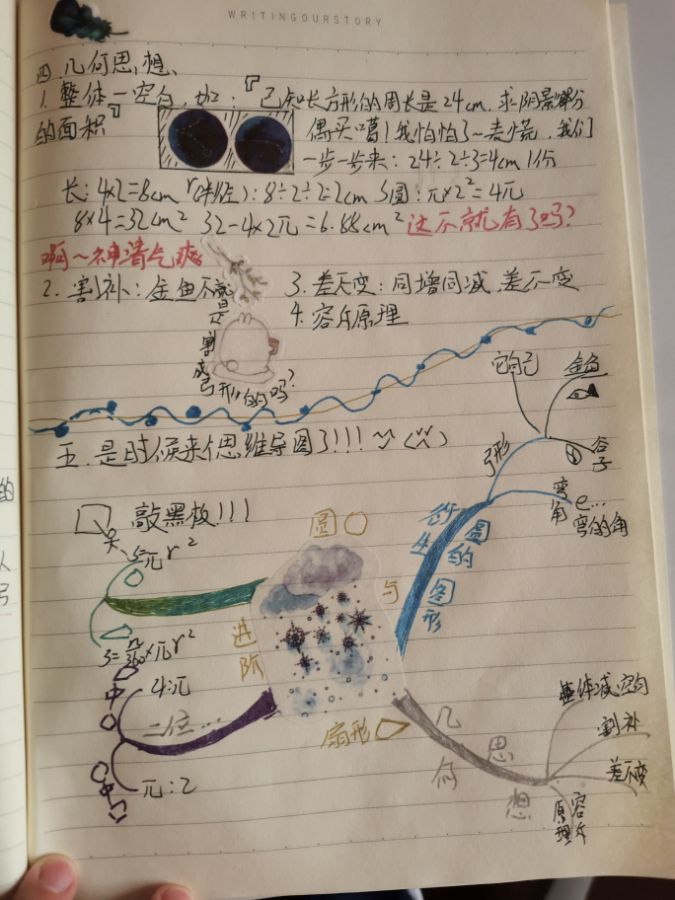 WRITINGOURSTORY
四.几何思想、
1. 整体一空白,如:『已知长方形的周长是24cm,求阴影部分
的面积』
偶买噶!我怕怕了~表慌,我们
一步一步来:24÷2÷3=4cm 1份
长:4×2=8cm r(半径):8÷2÷2=2cm S圆:π×2²=4π
8×4=32cm² 32-4×2π=6.88cm² 这不就有了吗?
啊~神清气爽
2. 割补:金鱼不就是割成弓形的吗?
3. 差不变:同增同减,差不变
4. 容斥原理
五.是时候来个思维导图了!!!
敲黑板!!!
S=πr²
S=n/360×πr²
4:π
二位...
π:2
进阶
圆
与
扇形
衍生
圆的图形
弓形
它自己
金鱼
谷子
弯角
e...
弯的角
几何思想
整体减空白
割补
差不变
容斥
原理
的
人
弓